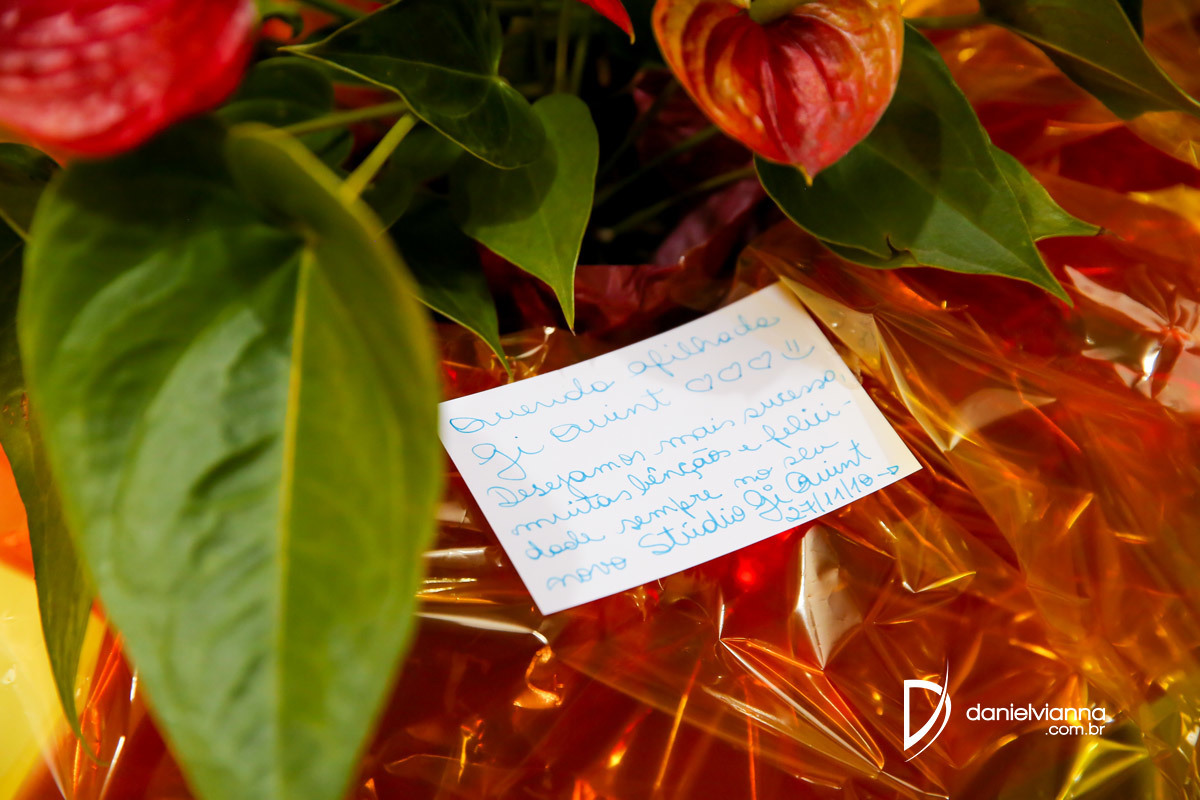 Querida afilhada
Gi Quint ♡♡♡ =)
Desejamos mais sucesso
muitas bênçãos e felici-
dade sempre no seu
novo Stúdio Gi Quint
27/11/18 →
danielvianna
.com.br